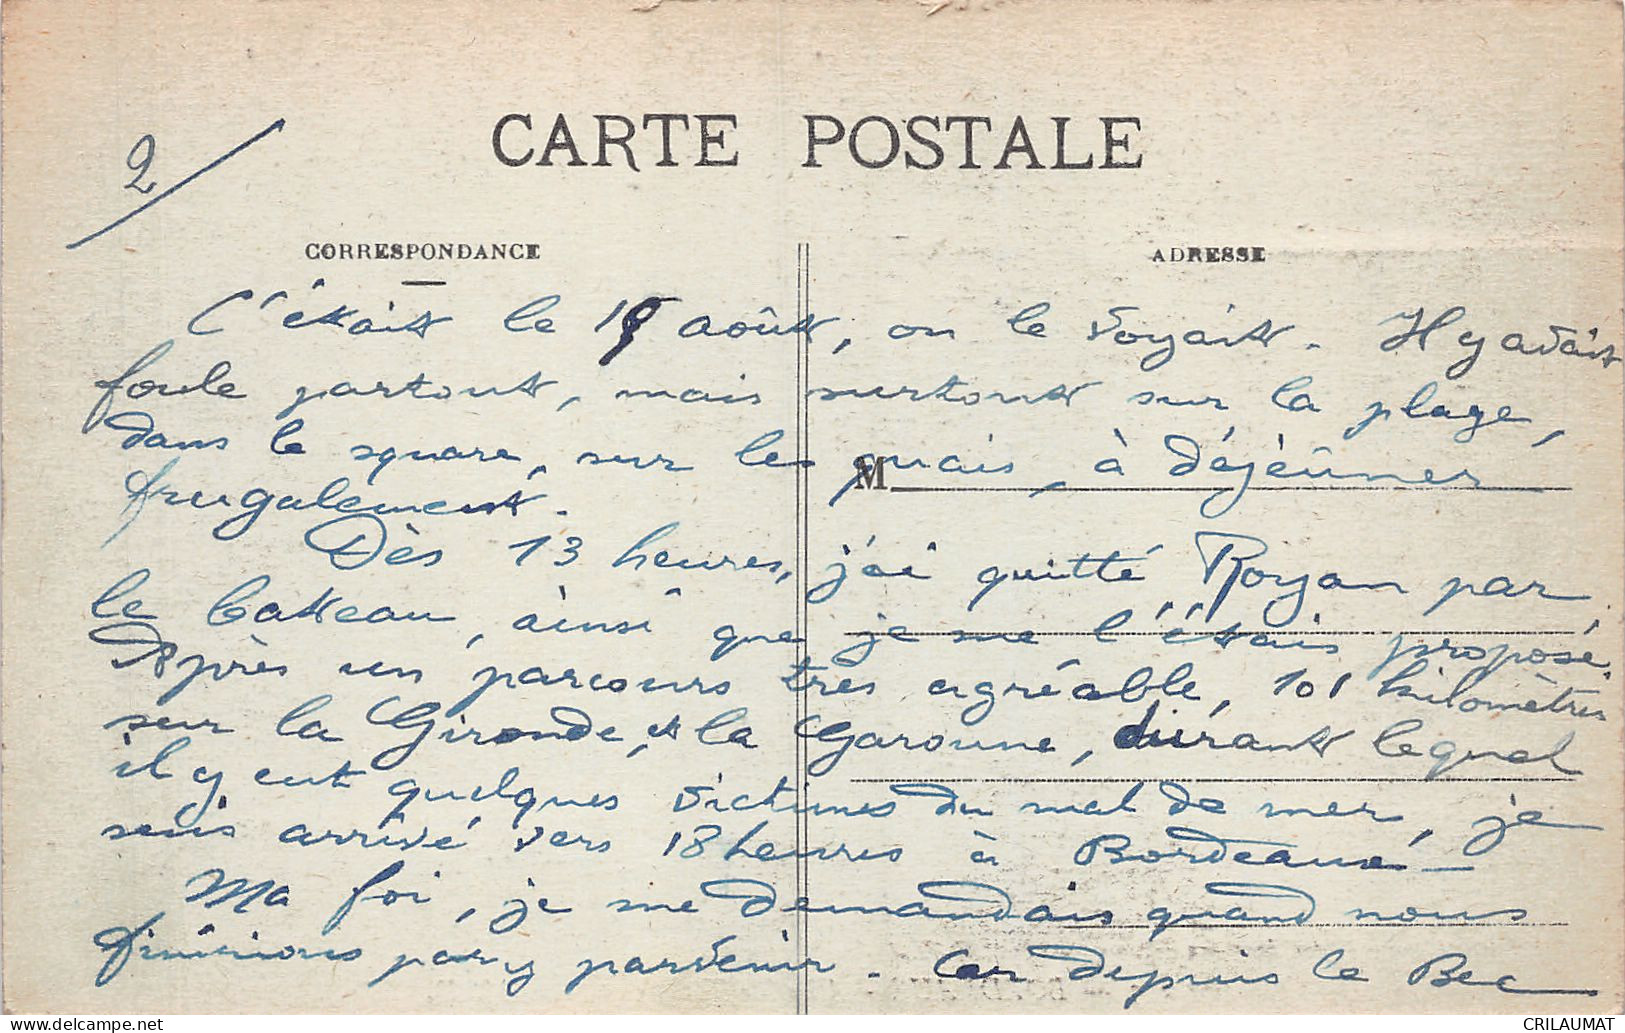 2/
CARTE POSTALE
CORRESPONDANCE
ADRESSE
M
C'était le 15 août, on le voyait. Il y avait
foule partout, mais surtout sur la plage,
dans le square, sur les quais, à déjeûner
frugalement.
Dès 13 heures, j'ai quitté Royan par
le bateau, ainsi que je me l'étais proposé.
Après un parcours très agréable, 101 kilomètres
sur la Gironde, et la Garonne, durant lequel
il y eut quelques victimes du mal de mer, je
suis arrivé vers 18 heures à Bordeaux
Ma foi, je me demandais quand nous
finirions par y parvenir. Car depuis le Bec
CRILAUMAT